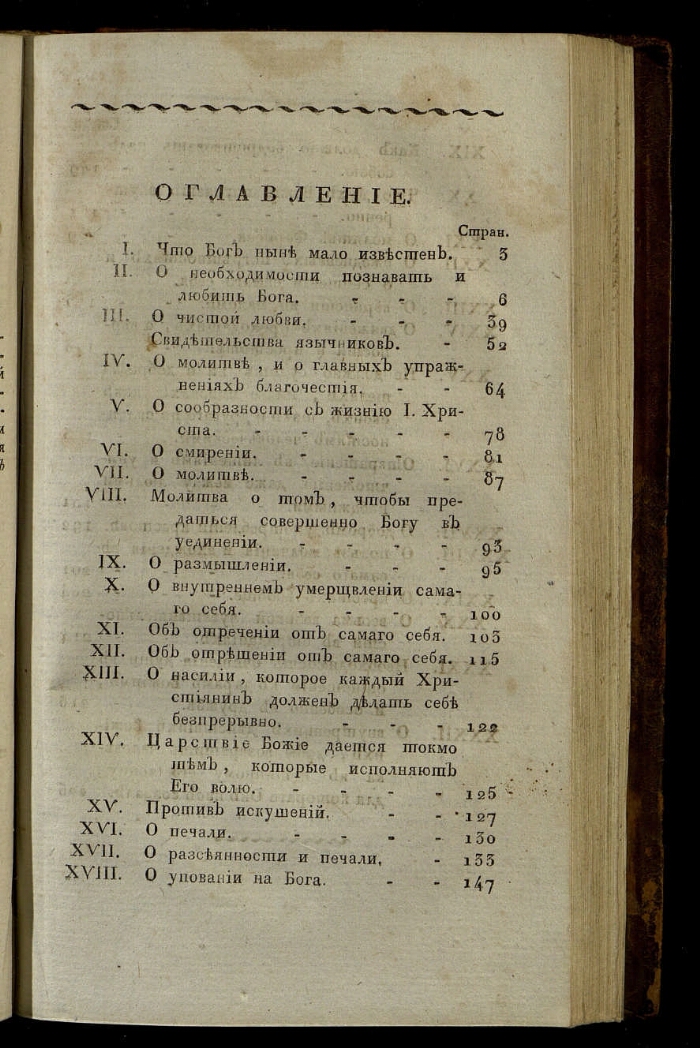 ОГЛАВЛЕНІЕ.
Стран.
I. Что Богъ нынѣ мало извѣстенъ. 3
II. О необходимости познавать и
любить Бога. - - - 6
III. О чистой любви. - - - 39
Свидѣтельства язычниковъ. - 52
IV. О молитвѣ, и о главныхъ упраж-
неніяхъ благочестія. - - 64
V. О сообразности съ жизнію І. Хри-
ста. - - - - - 78
VI. О смиреніи. - - - - 81
VII. О молитвѣ. - - - - 87
VIII. Молитва о томъ, чтобы пре-
даться совершенно Богу въ
уединеніи. - - - - 93
IX. О размышленіи. - - - 95
X. О внутреннемъ умерщвленіи сама-
го себя. - - - - 100
XI. Объ отреченіи отъ самаго себя. 103
XII. Объ отрѣшеніи отъ самаго себя. 115
XIII. О насиліи, которое каждый Хри-
стіянинъ долженъ дѣлать себѣ
безпрерывно. - - - 122
XIV. Царствіе Божіе дается токмо
тѣмъ, которые исполняютъ
Его волю. - - - - 125
XV. Противъ искушеній. - - 127
XVI. О печали. - - - - 130
XVII. О разсѣянности и печали, - 133
XVIII. О упованіи на Бога. - - 147